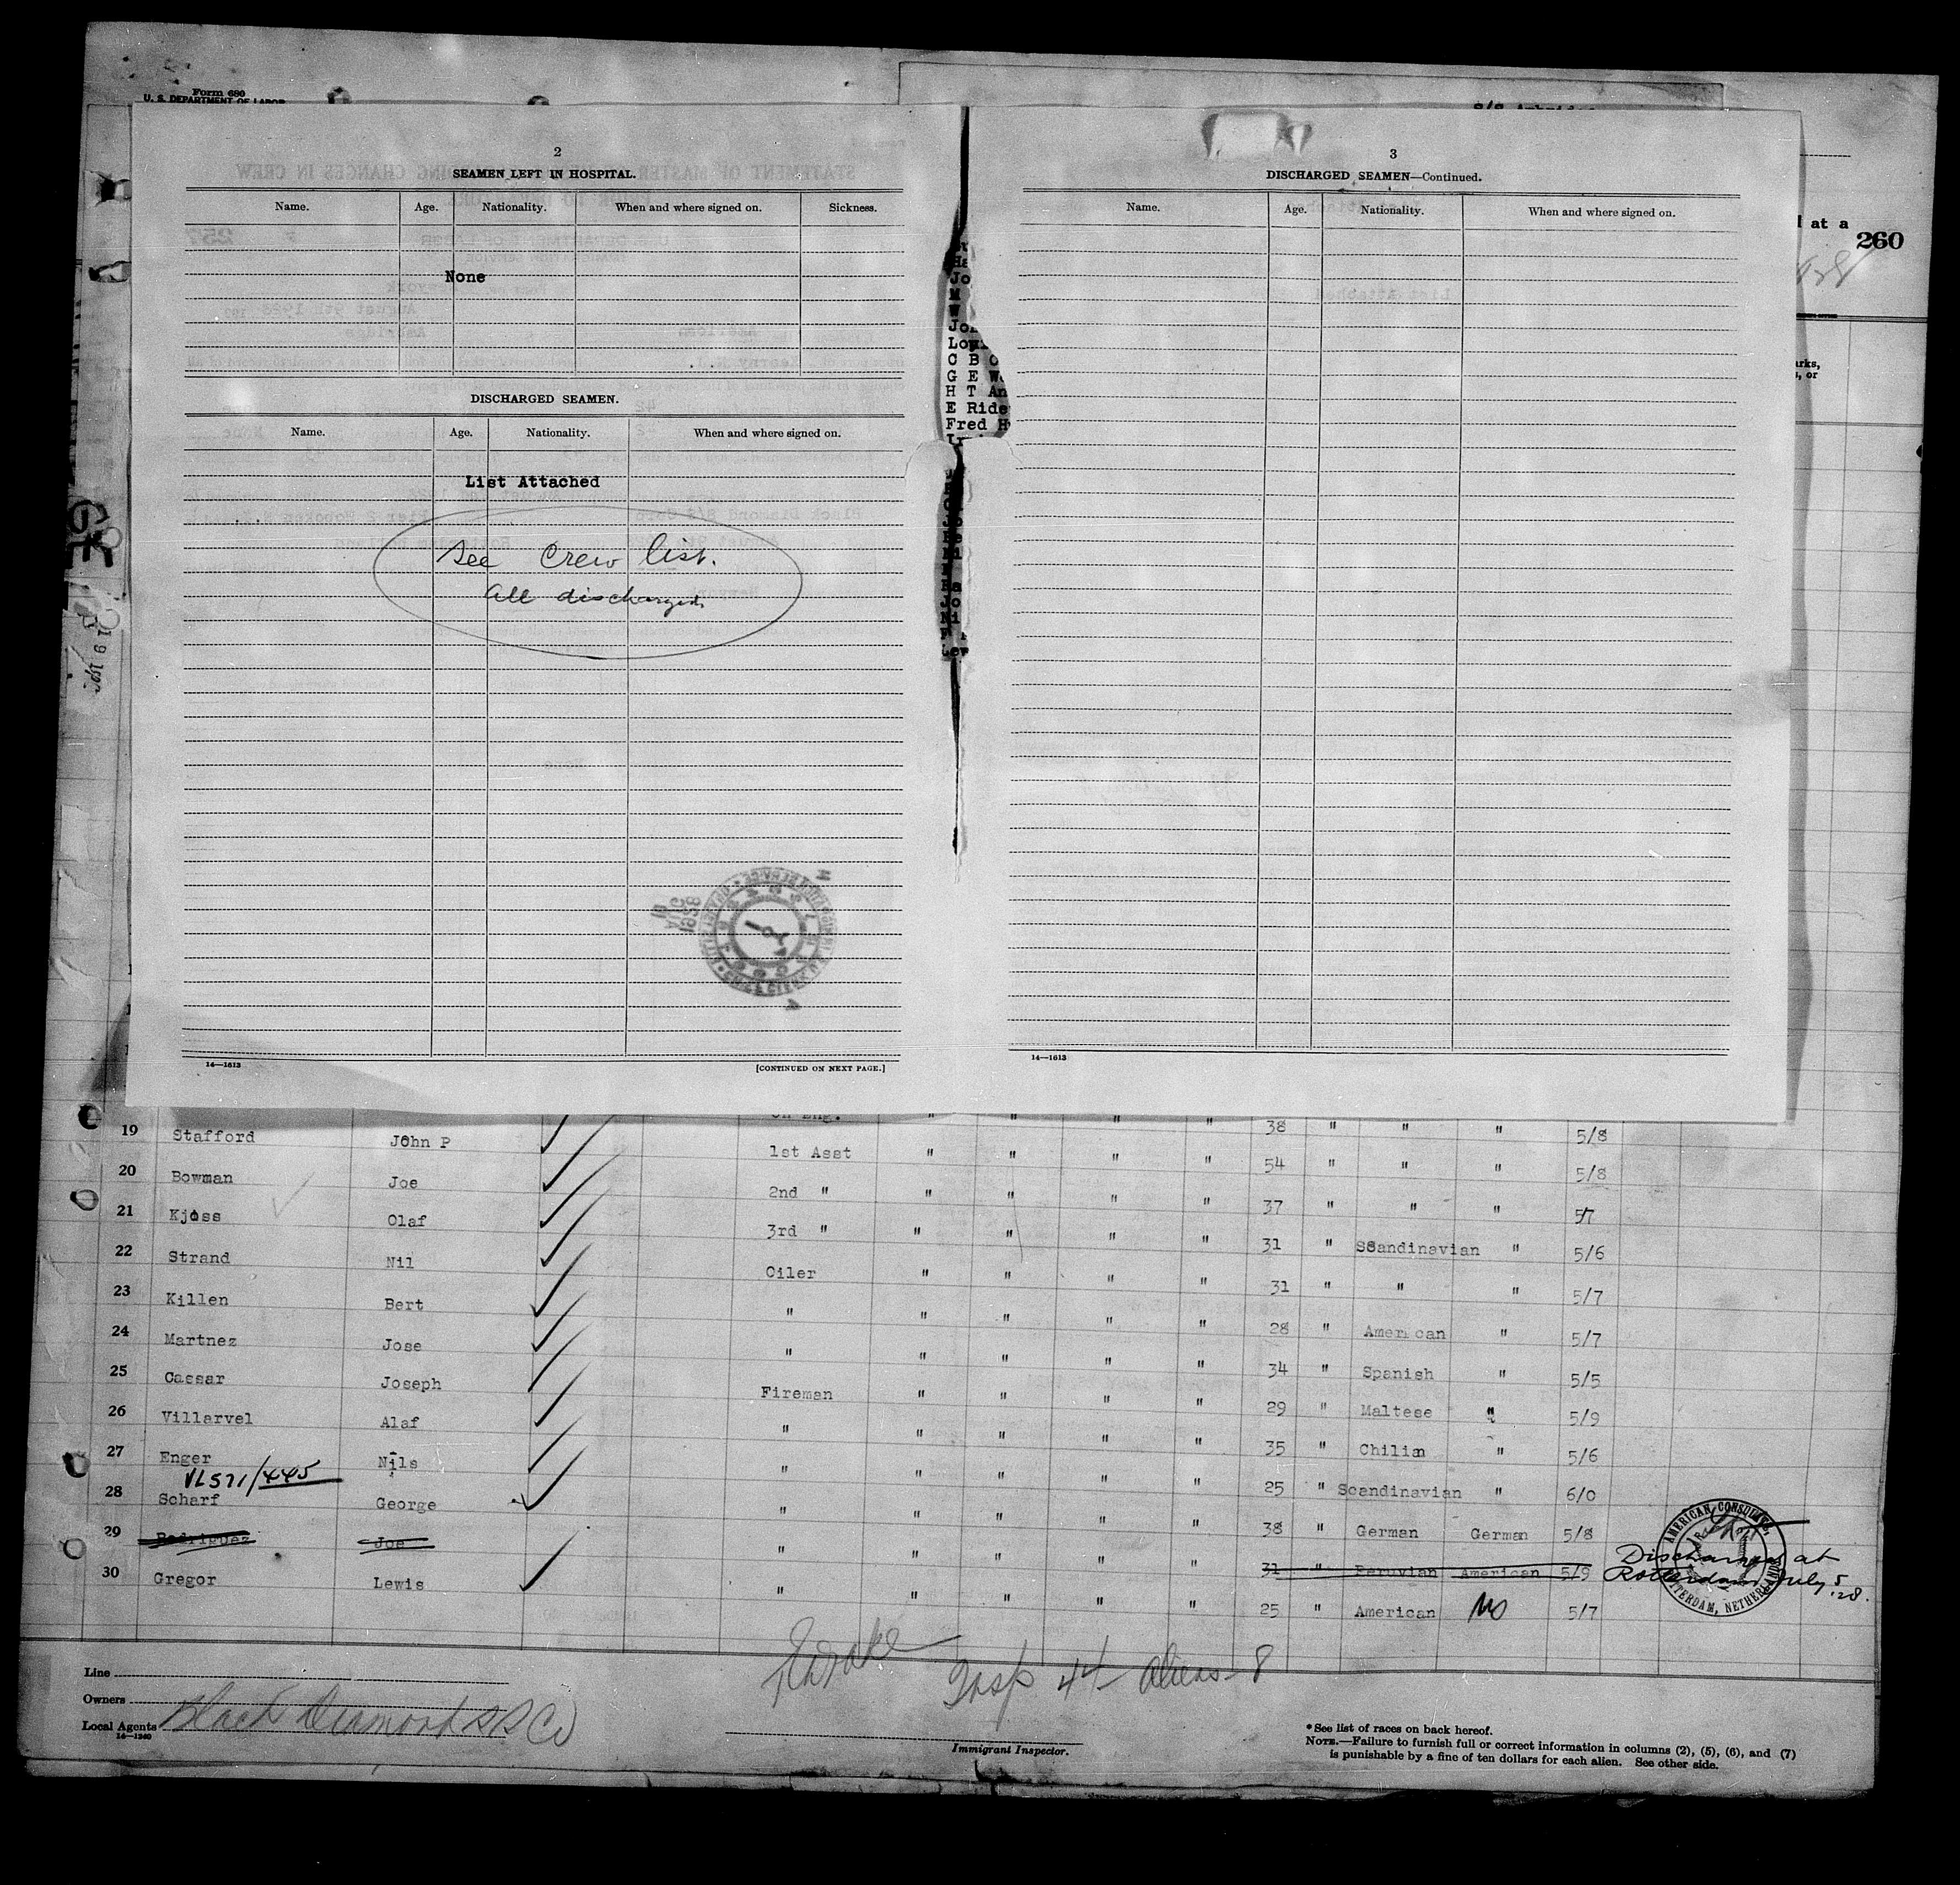 Form 680
U. S. DEPARTMENT OF LABOR
2
SEAMEN LEFT IN HOSPITAL.
Name. Age. Nationality. When and where signed on. Sickness.
None
DISCHARGED SEAMEN.
Name. Age. Nationality. When and where signed on.
List Attached
See Crew list.
all discharged.
14—1613 [CONTINUED ON NEXT PAGE.]
3
DISCHARGED SEAMEN—Continued.
Name. Age. Nationality. When and where signed on.
14—1613
at a
260
Jo
W
C B
G E
H T An
E Ride
Fred H
19 Stafford John P 1st Asst " " " " 54 " " " 5/8
20 Bowman Joe 2nd " " " " " 37 " " " 5/7
21 Kjoss Olaf 3rd " " " " " 31 " Scandinavian " 5/6
22 Strand Nil Oiler " " " " 31 " " " 5/7
23 Killen Bert " " " " " 28 " American " 5/7
24 Martnez Jose " " " " " 34 " Spanish " 5/5
25 Cassar Joseph Fireman " " " " 29 " Maltese " 5/9
26 Villarvel Alaf " " " " " 35 " Chilian " 5/6
27 Enger Nils " " " " " 25 " Scandinavian " 6/0
VL571/445
28 Scharf George " " " " " 38 " German German 5/8
29 Rodriguez Joe " " " " " 31 " Peruvian American 5/9 Discharged at
Rotterdam July 5 '28.
30 Gregor Lewis " " " " " 25 " American No 5/7
AMERICAN CONSULATE
ROTTERDAM, NETHERLANDS
Insp 44 Aliens-8
Line
Owners
Local Agents Black Diamond S S Co
14—1240
Immigrant Inspector.
*See list of races on back hereof.
NOTE.—Failure to furnish full or correct information in columns (2), (5), (6), and (7)
is punishable by a fine of ten dollars for each alien. See other side.